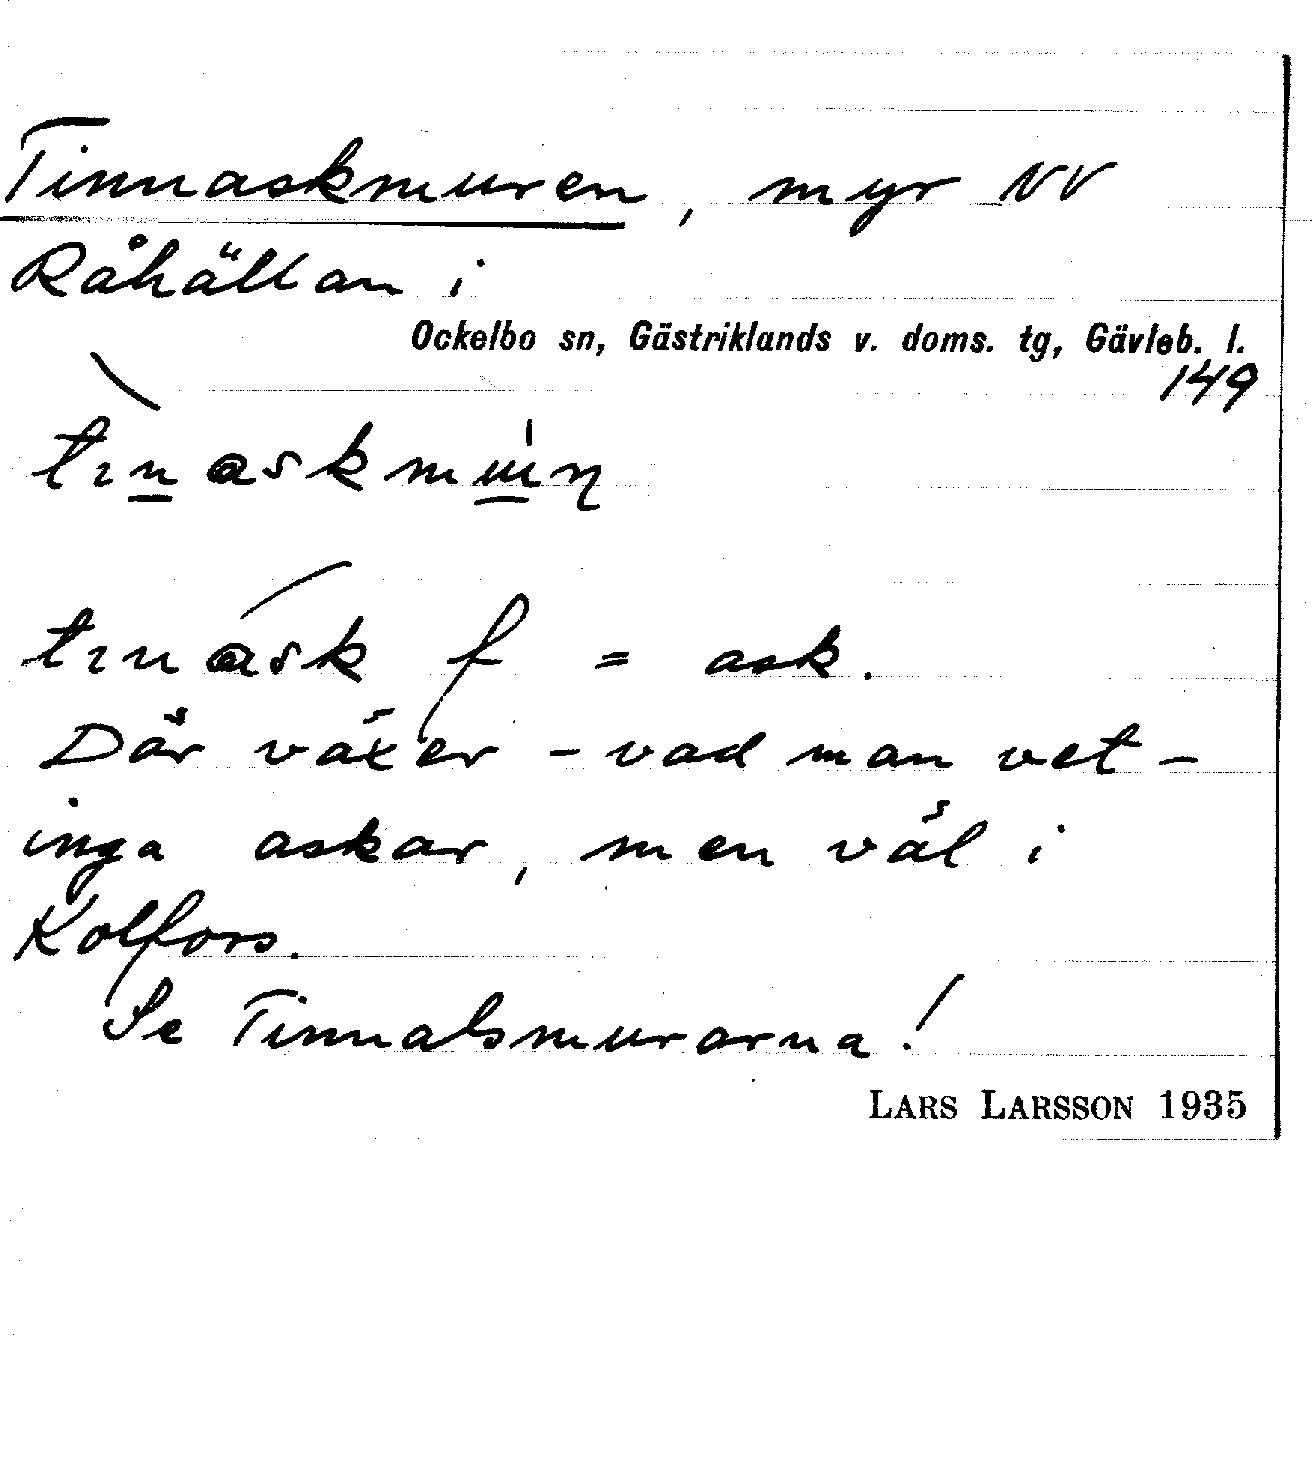 Tinnaskmuren, myr NV
Råhällan i
Ockelbo sn, Gästriklands v. doms. tg, Gävleb. l.
149
tınask f = ask.
Där växer – vad man vet –
inga askar, men väl i
Kolfors.
Se Tinnalsmurarna!
LARS LARSSON 1935